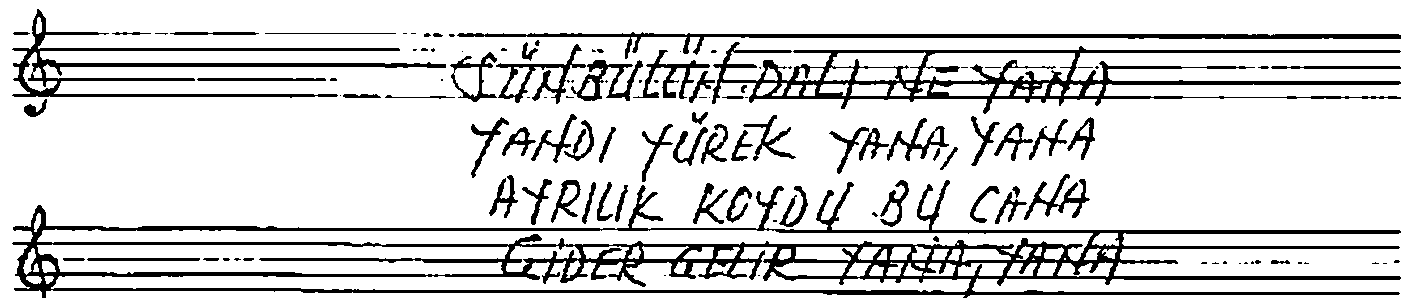 SÜNBÜLÜN DALI NE YANA
YANDI YÜREK YANA, YANA
AYRILIK KOYDU BU CANA
GİDER GELİR YANA, YANA